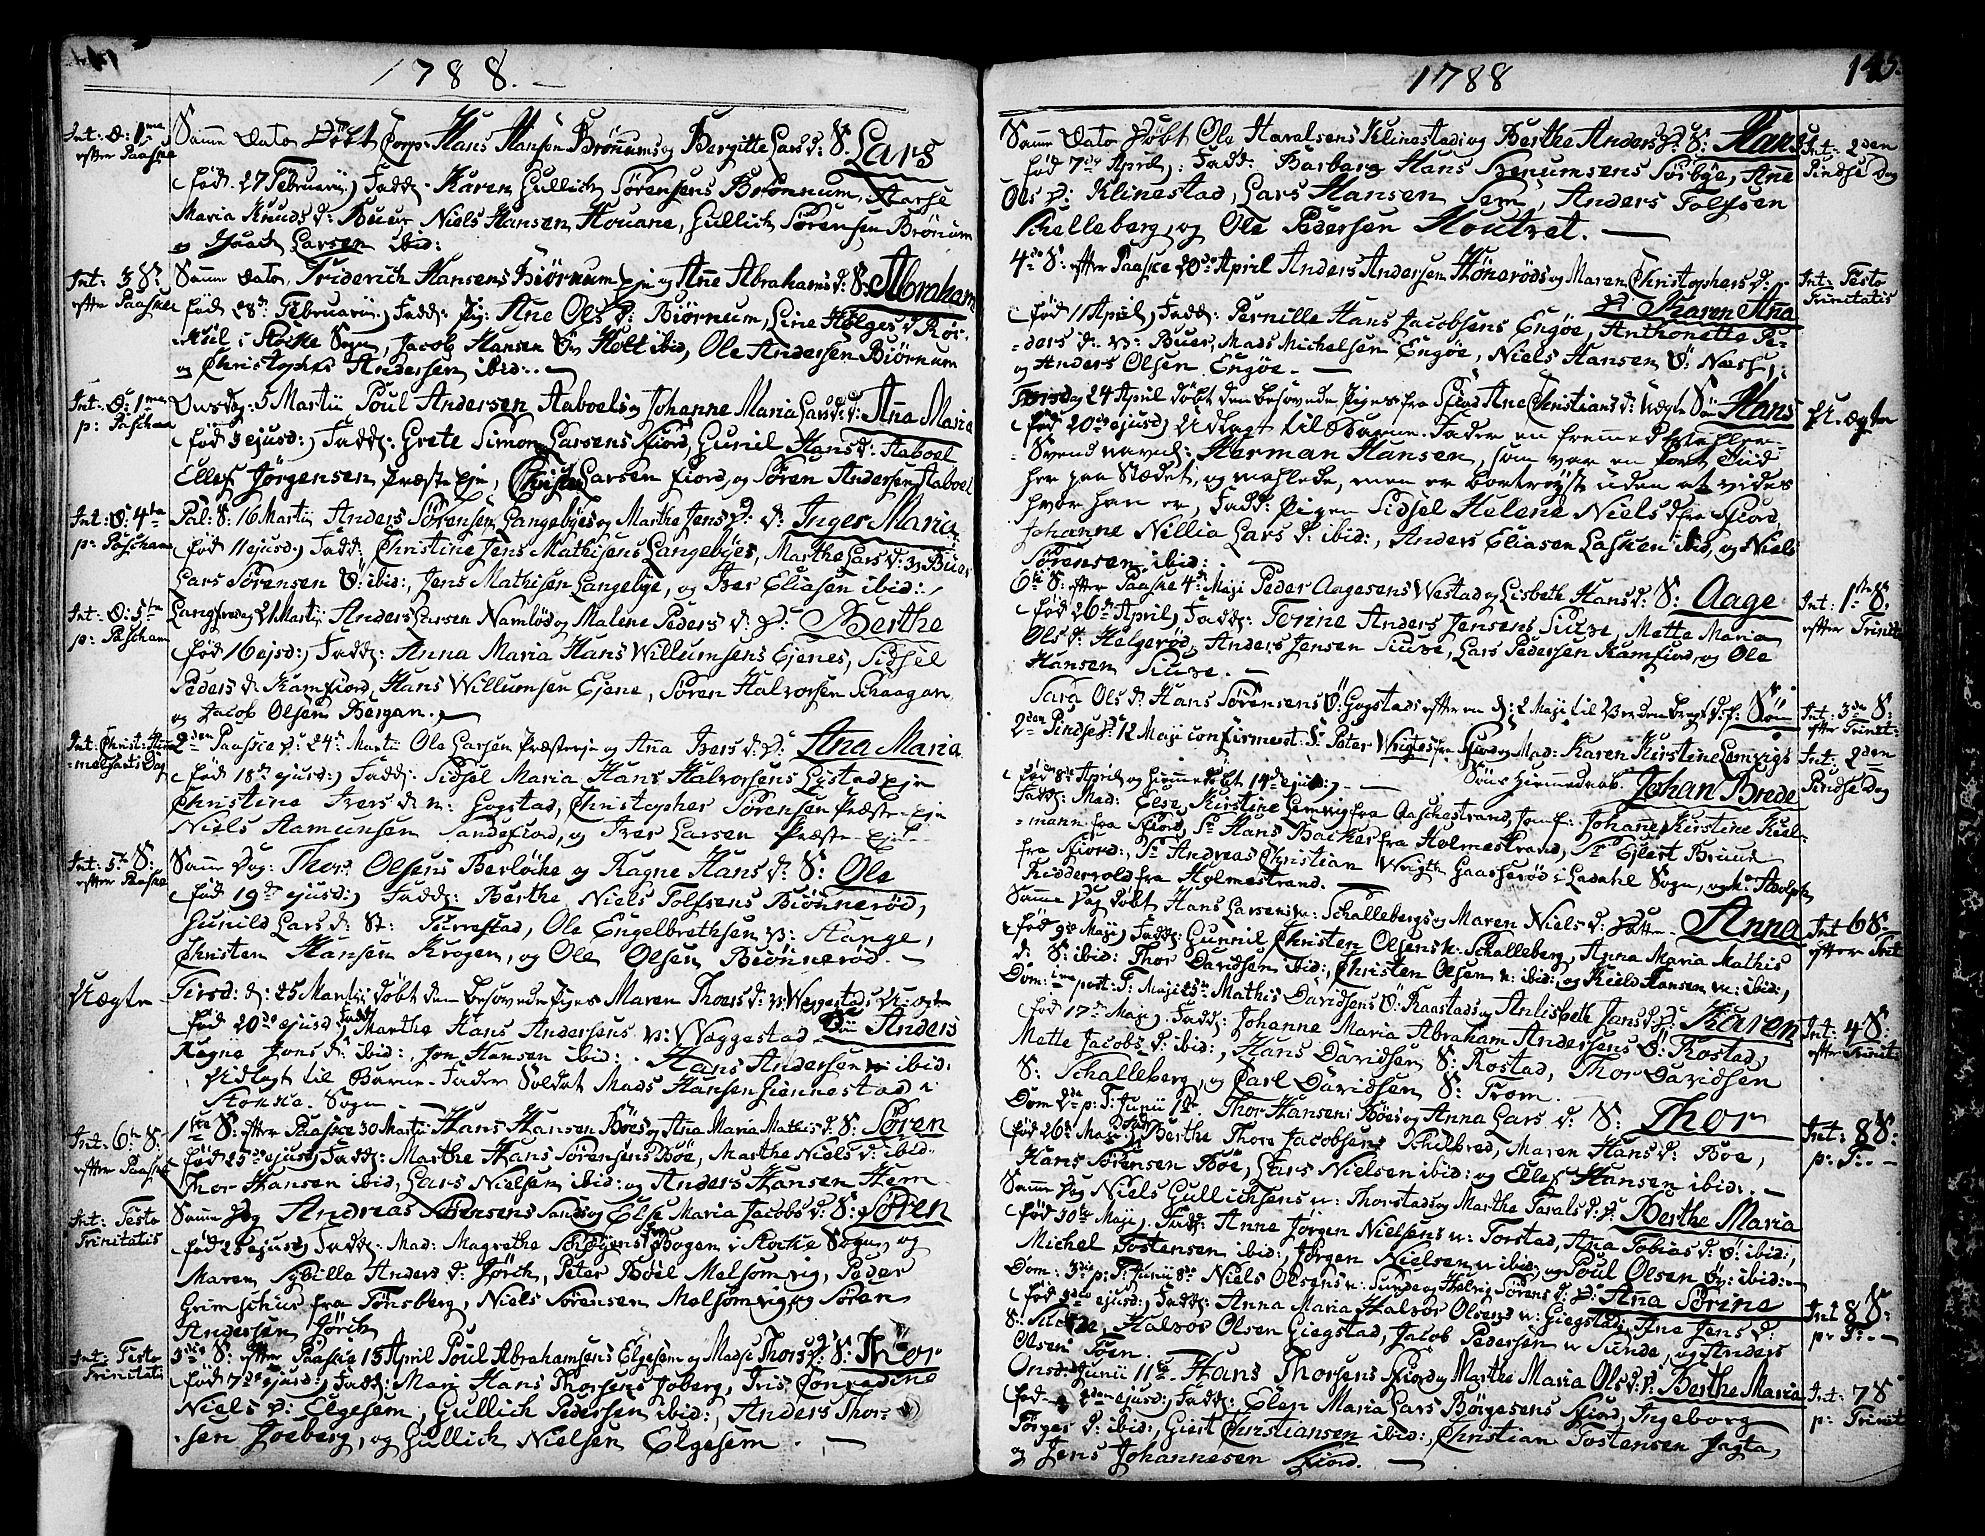 1788.
Int: D: 1me
efter Paaske
Samme Dato Døbt Corp: Hans Hansen Brønums og Bergitte Lars d: S. Lars
(fød. 27 Februarij.) Fadd: Karen Gullich Sørensens Brønnum,
Maria Knuds d: Buer, Niels Hansen Houane, Gullich Sørensen Brønum
og Larsen ibid:
Int: 3 S:
efter Paaske
Samme Dato, Friderich Hansens Biørnum Eje og Anne Abrahams d: S: Abraham
(fød 28de Februarij.) Fadd: Pig: Ane Ols d: Biørnum, Line Holges d
i Stokke Sogn, Jacob Hansen Holt ibid, Ole Andersen Biørnum
og Christopher Andersen ibid: —
Int: D: 1me
p: Pascham
Onsdag 5 Martii Poul Andersen Aaboels og Johanne Maria Lars d: d: Ana Maria
(fød 3 ejusd:) Fadd: Grete Simon Larsens Fiord, Gunil Hans d: Aaboel
Ellef Jørgensen Præste Eje, Christen Larsen Fiord, og Søren Andersen Aaboel
Int: D: 4ta
p: Pascham
Pal: S: 16 Martii Anders Sørensen Langebyes og Marthe Jens D: d: Inger Maria
(fød 11 ejusd:) Fadd: Christine Jens Mathisens Langebyes, Marthe Lars d: Buer
Lars Sørensen ibid:, Jens Mathisen Langebye, og Iver Eliasen ibid:
Int: D: 5ta
p: Pascham
Langfredag 21 Martii Anders Larsen Namløs og Malene Peders d: D: Berthe
(fød 16 ejusd:) Fadd: Anna Maria Hans Willumsens Ejenes, Sidsel
Peders d: Kamfiord, Hans Willumsen Ejene, Søren Halvorsen Skaagan
og Jacob Olsen Bergan. —
Int: Christ: Him-
melfarts Dag
2den Paaske D: 24de Martii Ole Larsen Præsteeje og Ana Ivers d: D: Ana Maria
(fød 18de ejusd:) Fadd: Sidsel Maria Hans Halvorsens Lystad Eje
Christine Ivers d: Gogstad, Christopher Sørensen Præste Eje
Niels Aamunsen Sandefiord, og Iver Larsen Præste Eje
Int: 5te S:
efter Paaske
Samme Dag: Thor Olsens Berløcke og Ragne Hans d: S: Ole
(fød 19de ejusd:) Fadd: Berthe Niels Tolfsens Biønnerød,
Gunild Lars d: St: Furrestad, Ole Engelbrethsen Hange,
Christen Hansen Krogen, og Ole Olsen Biønnerød. —
U. Ægte
Tirsd: d: 25 Martij døbt den besovede Piges Maren Thors d: Weggestads U: ægte
(fød 20de ejusd) Fadd: Marthe Hans Andersens Waggestad Søn Anders
Ragne Jons d: ibid:, Jon Hansen ibid:. Hans Andersen ibid:
Udlagt til Barne-Fader Soldat Mads Hansen Giennestad i
Stokke Sogn
Int: 6te S:
efter Paaske
1te S: efter Paaske 30 Martii Hans Hansen Bøes og Ana Maria Mathis d. S: Søren
(fød 25de ejusd:) Fadd: Marthe Hans Sørensens Bøe, Marthe Niels d: ibid.
Thor Hansen ibid, Lars Nielsen ibid: og Anders Hansen Hem
Int: Festo
Trinitatis
Samme Dag Andreas Sørensens Sandes og Else Maria Jacobs d. S: Søren
(fød 25 ejusd.) Fadd: Mad: Magrethe Bogen i Stocke Sogn, og
Maren Sybilla Anders d: Jørch, Peter Bøel Melsomvig, Peder
Grimschier fra Tønsberg, Niels Sørensen Melsomvig og Søren
Andersen Jørch
Int: Festo
Trinitatis
3die S: efter Paaske 13 April Poul Abrahamsens Elgesem og Madsi Thors d: S: Thor
(fød 7de ejusd:) Fadd: Mari Hans Thorsens Joberg, Iris Conradine
Niels D: Elgesem, Gullich Pedersen ibid:, Anders Thor-
sen Joeberg, og Gullich Nielsen Elgesem. —
1788
145.
Samme Dato Døbt Ole Haralsens Klinestad og Berthe Anders D: S: Hans
(fød 7de April.) Fadd: Barbara Hans Sørbye, Ane
Ols D: Klinestad, Lars Hansen Sem, Anders Tolfsen
Schelleberg, og Ole Pedersen Houtvet. —
Int: 2den
Pindse Dag
4de S: efter Paaske 20de April Anders Andersen og Maren Christophers d:
D: Karen Ana
(fød 11 April) Fadd: Pernille Hans Jacobsens Engøe, Anthonette Pe-
ders d: Buer, Mads Michelsen Engøe, Niels Hansen Ø: Næss,
og Anders Olsen Engøe. —
Int: Festo
Trinitatis
Torsdag 24 April døbt den besovede Piges fra Fiord Ane Christians d: Uægte Søn Hans
(fød 20de ejusd:) Udlagt til Barne-Fader en fremmed Mahler-
Svend navnl: Herman Hansen, som var en kort Tiid
her paa Stædet, og mahlede, men er bortreyst uden at vides
hvor han er, Fadd: Pigen Sidsel Helene Niels d fra Fiord,
Johanne Nillia Lars D: ibid:, Anders Eliasen Lasken ibid, og Niels
Sørensen ibid:
U. ægte
6te S: efter Paaske 4de Maji Peder Aagesens Westad og Lisbeth Hans d: S: Aage
(fød 26de April) Fadd: Torine Anders Jensens Siuve, Mette Maria
Ols d: Helgerød, Anders Jensen Siuve, Lars Pedersen Kamfiord, og Ole
Hansen Siuve. —
Int: 1ste S.
efter Trinit:
Sara Ols d: Hans Sørensens Ø: Gogstads efter en d: 2 Maji til Verden bragt d. f. Søn
Int: 3de S:
efter Trinit:
2den Pindse D: 12 Maji confirmeret Sr Peter Wrigtes fra Fiord og Mad: Karen Kirstine Lemvigs
(fød 8de April og hiemmedøbt 14de ejusd) — Søns Hiemmedaab. Johan Brede
Fadd: Mad: Else Kirstine Lemvig fra Aasgestrand, Jomf: Johane Kirstine Kiel-
mann fra Fiord, Sr Hans Backer fra Holmestrand, Sr Ejlert Bruun
fra Fiord:, Sr Andreas Christian Wrigth Gaasserød i Ladahl Sogn, og Mr Adolph
Riddervold fra Holmestrand. —
Int: 2den
Pindse Dag
Samme Dag døbt Hans Larsens Schallebergs og Maren Niels d: Datter Anna
(fød 9de Maji) Fadd: Gunnil Christen Olsens Schalleberg, Anna Maria Mathis
d: S: ibid: Thor Davidsen ibid:, Christen Olsen ibid: og Kield Hansen ibid:,
Int 6 S.
efter Trinit:
Dom: 1me post: T: Maji 25de Mathis Davidsens Ø: Raastads og Anlisbeth Jans d: D: Karen
(fød 17de Maji) Fadd: Johanne Maria Abraham Andersens Ø: Rostad,
Mette Jacobs D: ibid:, Hans Davidsen S: Rostad, Thor Davidsen
S: Schalleberg, og Carl Davidsen S: From.
Int: 4 S:
efter Trinit:
Dom 2da p: T: Junii 1te. Thor Hansens Bøes og Anna Lars d: S: Thor
(fød 26de Maji) Fadd: Berthe Thore Jacobsens Schilbred, Maren Hans d: Bøe,
Hans Sørensen Bøe, Lars Nielsen ibid: og Ellef Hansen ibid:. —
Int: 8 S:
p: T: —
Samme Dag Niels Gullichsens Thorstads og Marthe Tarals d: D: Berthe Maria
(fød 30te Maji) Fadd: Anne Jørgen Nielsens Torstad, Ana Tobias d: ibid:,
Michel Tostensen ibid:, Jørgen Nielsen ibid: og Poul Olsen ibid:
Dom: 3tia p: T: Junii 8de Niels Olsens Sunde og Helvig Sørens d: D: Ana Sørine
(fød ejusd:) Fadd: Anna Maria Halvor Olsens Giegstad, Ane Jens d:
S: Halvor Olsen Giegstad, Jacob Pedersen Sunde, og Anders
Olsen Foen. —
Int 8 S:
p: T: —
Onsd: Junii 11te. Hans Thorsens Fiord og Marthe Maria Ols d: D: Berthe Maria
(fød 2den ejusd:) Fadd: Elen Maria Lars Børgesens Fiord, Ingeborg
Børges D: ibid:, Giert Christiansen ibid:, Christian Tostensen Jagta,
og Jens Johannesen Fiord. —
Int: 7 S:
p: Trinit